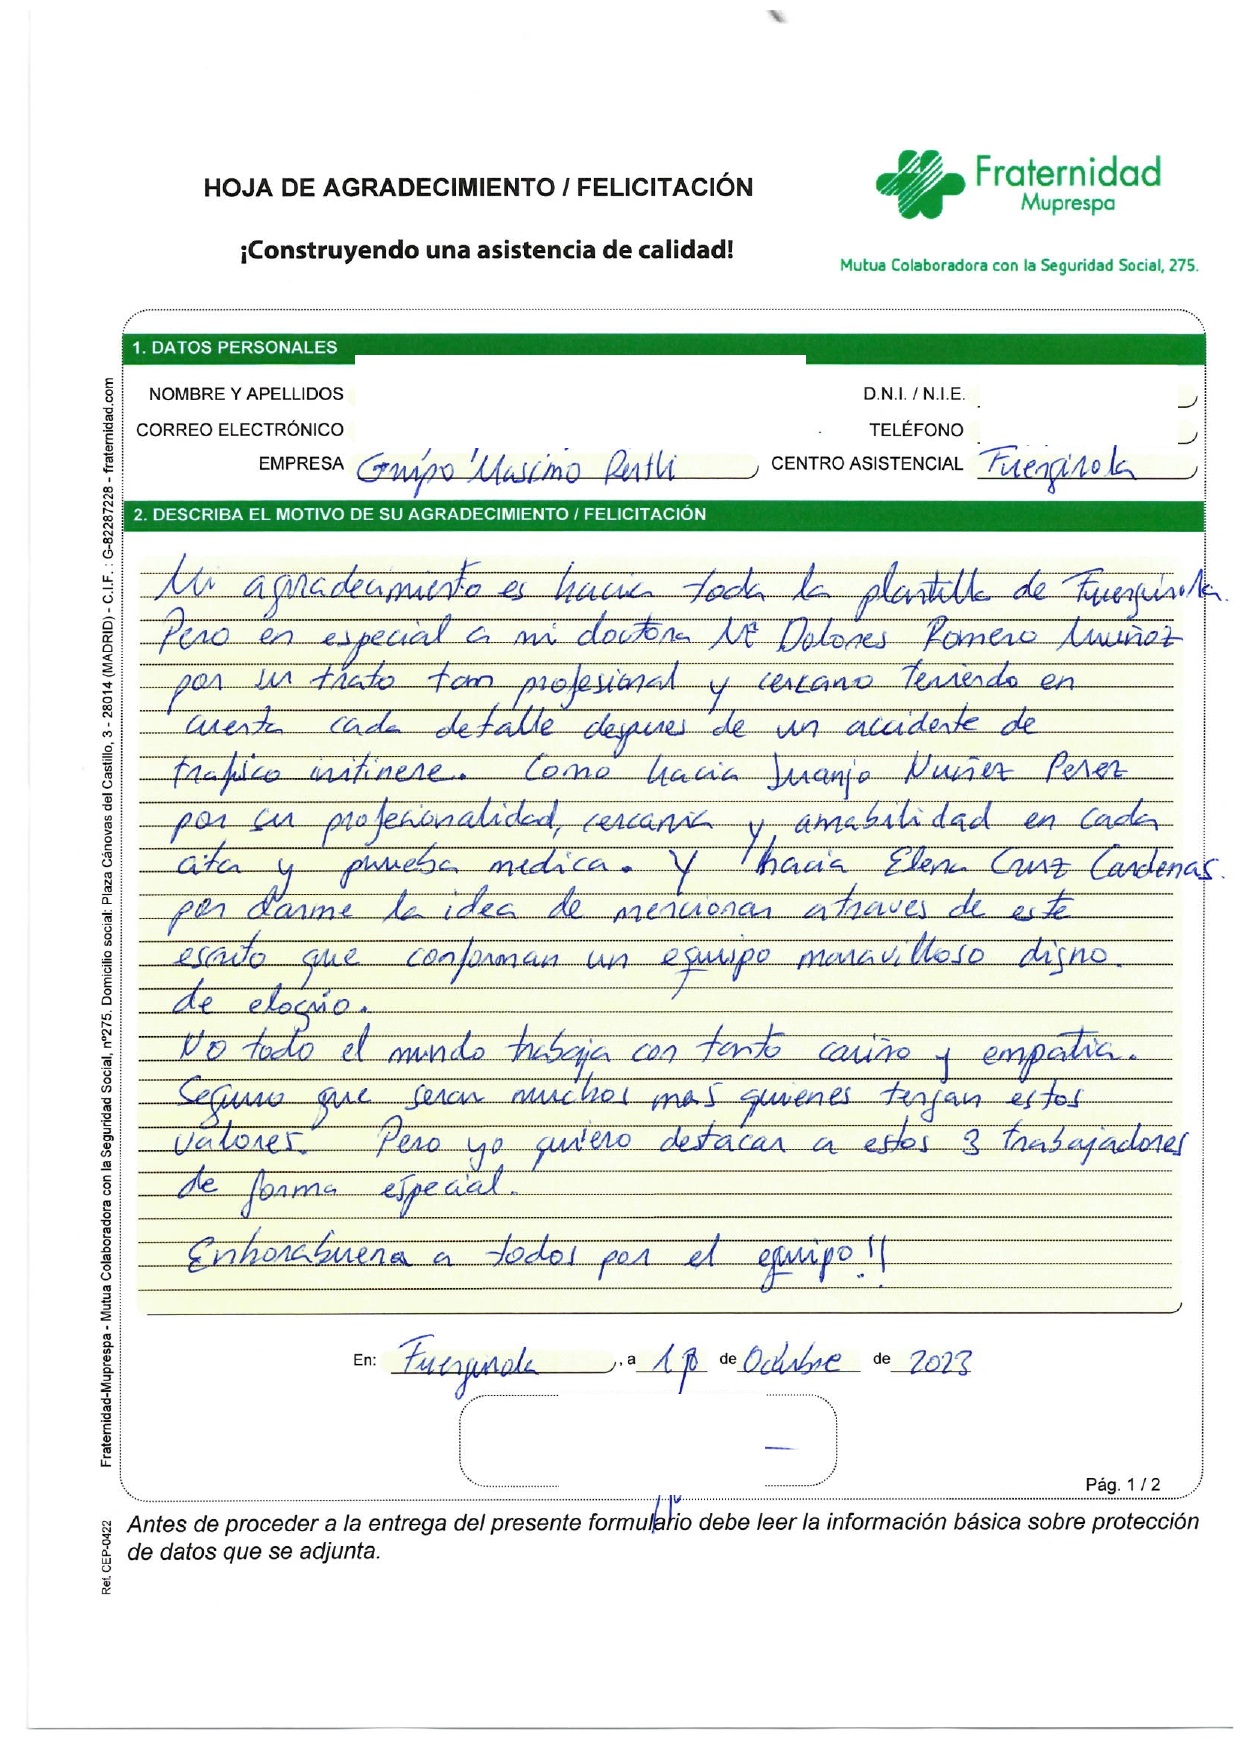 HOJA DE AGRADECIMIENTO / FELICITACIÓN
¡Construyendo una asistencia de calidad!
Fraternidad
Muprespa
Mutua Colaboradora con la Seguridad Social, 275.
1. DATOS PERSONALES
NOMBRE Y APELLIDOS
D.N.I. / N.I.E.
CORREO ELECTRÓNICO
TELÉFONO
EMPRESA Grupo Masimo
CENTRO ASISTENCIAL Fuengirola
2. DESCRIBA EL MOTIVO DE SU AGRADECIMIENTO / FELICITACIÓN
Mi agradecimiento es hacia toda la plantilla de Fuengirola.
Pero en especial a mi doctora Mª Dolores Romero Muñoz
por su trato tan profesional y cercano teniendo en
cuenta cada detalle despues de un accidente de
trafico initinere. Como hacia Juanjo Nuñez Perez
por su profesionalidad, cercania y amabilidad en cada
cita y prueba medica. Y hacia Elena Cruz Cardenas.
por darme la idea de mencionar atraves de este
escrito que conforman un equipo maravilloso digno.
de elogio.
No todo el mundo trabaja con tanto cariño y empatia.
Seguro que seran muchos mas quienes tengan estos
valores. Pero yo quiero destacar a estos 3 trabajadores
de forma especial.
Enhorabuena a todos por el equipo!!
En: Fuengirola, a de Octubre de 2023
Pág. 1 / 2
Antes de proceder a la entrega del presente formulario debe leer la información básica sobre protección
de datos que se adjunta.
Fraternidad-Muprespa - Mutua Colaboradora con la Seguridad Social, nº275. Domicilio social: Plaza Cánovas del Castillo, 3 - 28014 (MADRID) - C.I.F. : G-82287228 - fraternidad.com
Ref. CEP-0422